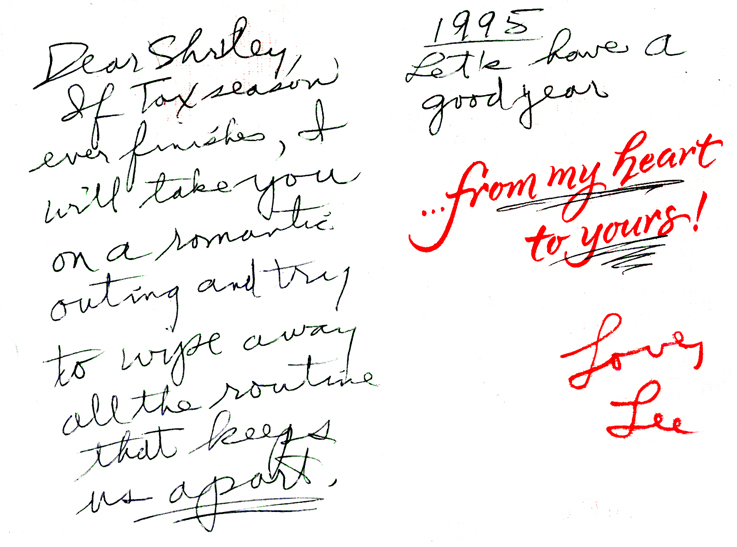 Dear Shirley,
If Tax season
ever finishes, I
will take you
on a romantic
outing and try
to wipe away
all the routine
that keeps
us apart.
1995
Let's have a
good year
...from my heart
to yours!
Love,
Lee